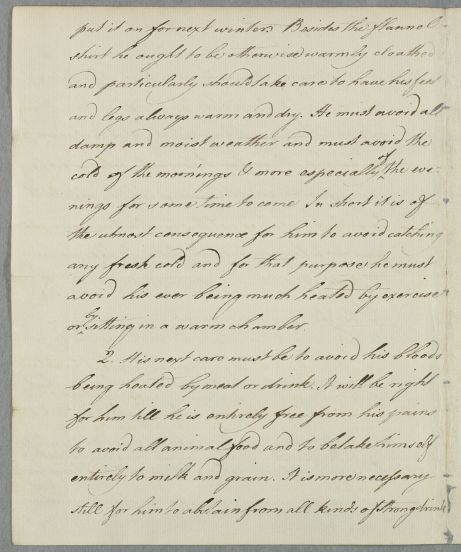 put it on for next winter. Besides the flannel
shirt he ought to be otherwise warmly cloathed
and particularly should take care to have his feet
and legs always warm and dry. He must avoid all
damp and moist weather and must avoid the
cold of the mornings & more especially of the eve-
nings for some time to come In short it is of
the utmost consequence for him to avoid catching
any fresh cold and for that purpose he must
avoid his ever being much heated by exercise
or by sitting in a warm chamber.
2. His next care must be to avoid his bloods
being heated by meat or drink. It will be right
for him till he is entirely free from his pains
to avoid all animal food and to betake himself
entirely to milk and grain. It is more necessary
still for him to abstain from all kinds of strong drink